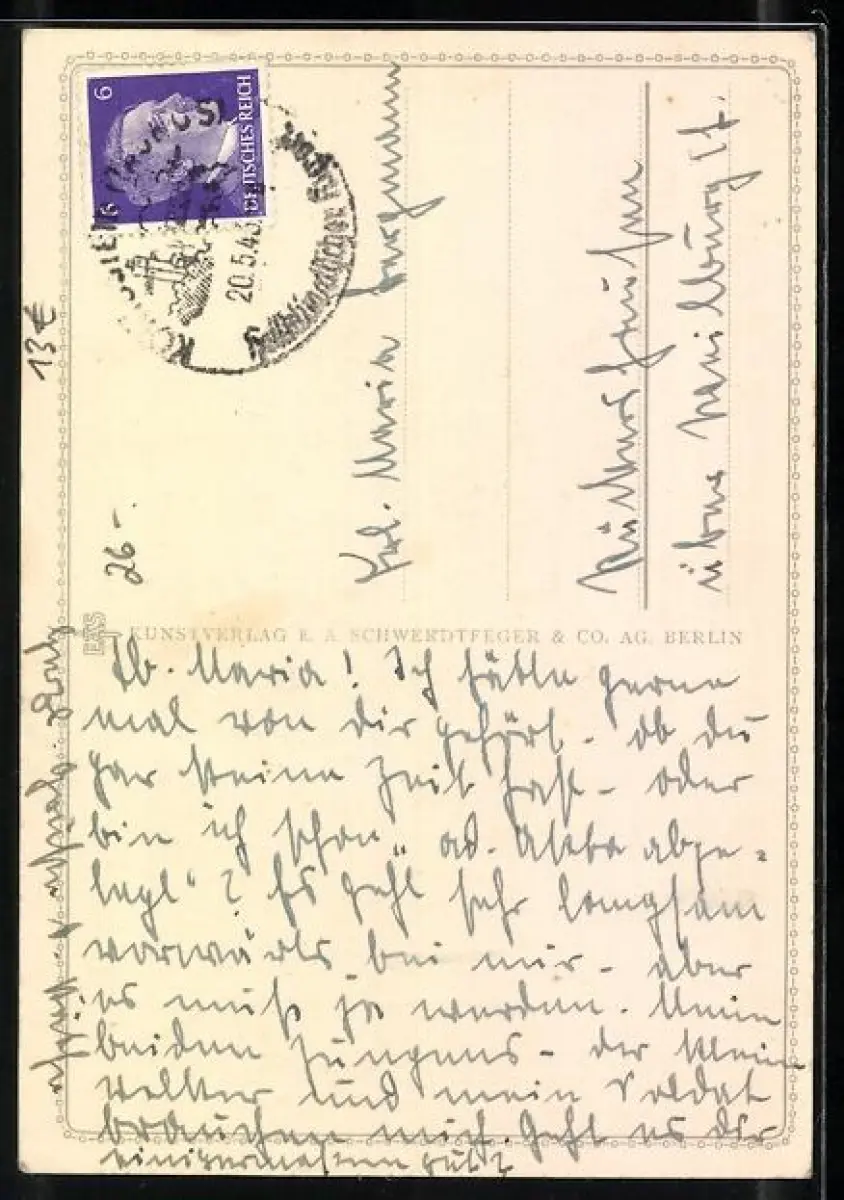 6
6
DEUTSCHES REICH
20.5.43
13 €
26-.
Frl. Maria Bergmann
über
KUNSTVERLAG E. A. SCHWERDTFEGER & CO. AG. BERLIN
EAS
Lb. Maria! Ich hätte gerne
mal von dir gehört - ob du
gar keine Zeit hast - oder
bin ich schon „ad. Akta abge=
legt“? Es geht sehr langsam
vorwärts bei mir - aber
es muß ja werden. Meine
beiden Jungens - der kleine
Volker und mein Soldat
brauchen mich. Geht es dir
einigermaßen gut?